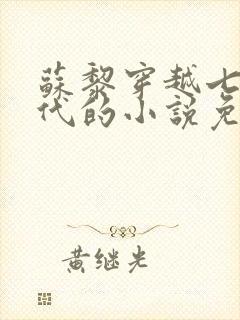 蘇黎穿越七
代的小說免
黄继光